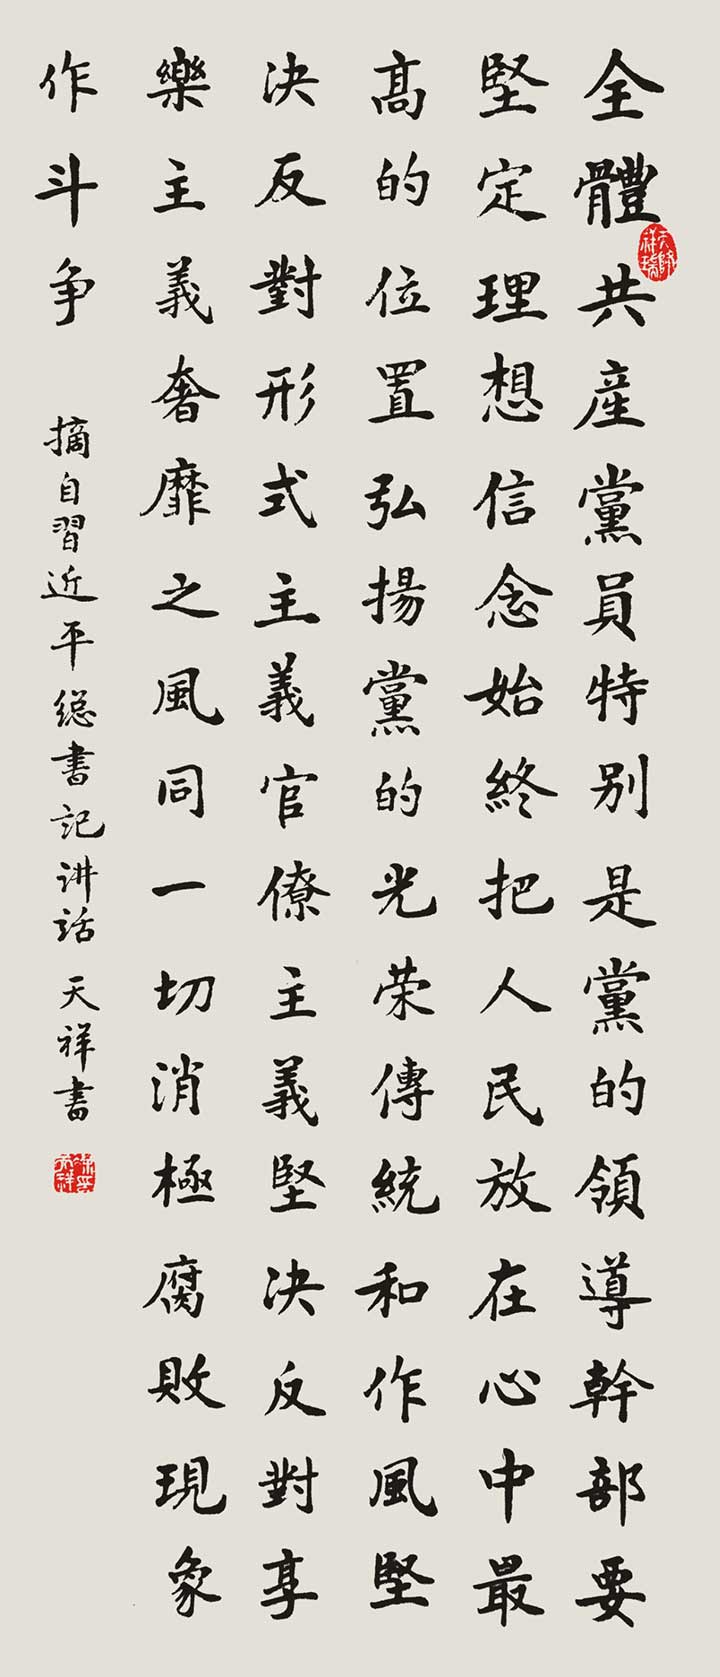 全體共産黨員特别是黨的領導幹部要
堅定理想信念始終把人民放在心中最
高的位置弘揚黨的光荣傳統和作風堅
决反對形式主義官僚主義堅决反對享
樂主義奢靡之風同一切消極腐敗現象
作斗争
摘自習近平總書記讲話 天祥書